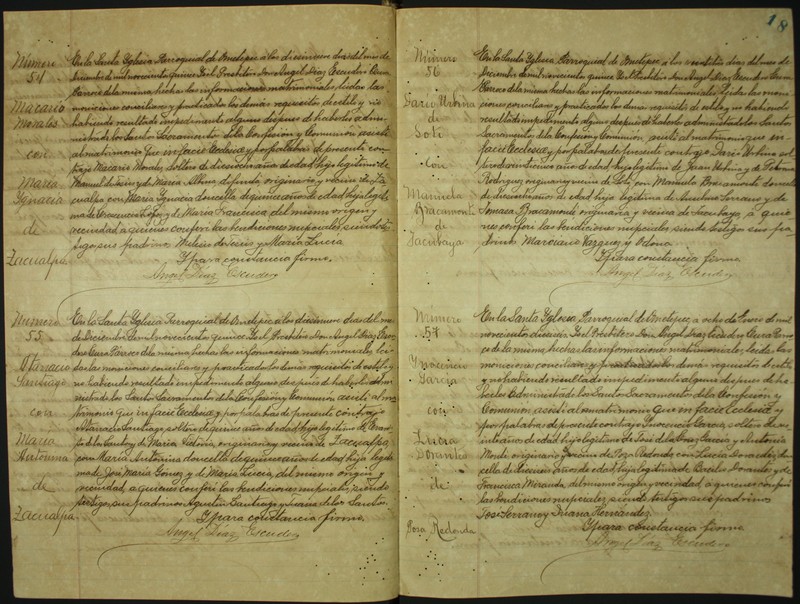 18
Número
54
Macario
Morales
con
María
Ignacia
de
Zacualpa
En la Santa Yglesia Parroquial de Ometepec a los diecinueve dias del mes de
Diciembre de mil novecientos quince Yo el Presbítero Don Angel Diaz Escudero Cura
Parroco de la misma, hechas las informaciones matrimoniales, leidas las
moniciones conciliares y practicados los demás requisitos de estilo y no
habiendo resultado impedimento alguno despues de haberles admi-
nistrado los Santos Sacramentos de la Confesión y Comunión asistí
al matrimonio que in facie Ecclesia y por palabras de presente con-
trajo Macario Morales, soltero de dieciocho años de edad hijo legítimo de
Manuel de Jesus y de María Albina difunta originario y vecino de Za-
cualpa con María Ignacia doncella de quince años de edad hija legíti-
ma de López y de María Francisca del mismo origen y
vecindad, a quienes conferí las bendiciones nupciales, siendo tes-
tigos sus padrinos de Jesús y María Lucía
Y para constancia firmo.
Angel Diaz Escudero
Número
55
Santiago
con
María
Antonina
de
Zacualpa
En la Santa Yglesia Parroquial de Ometepec a los diecinueve dias del mes
de Diciembre de mil novecientos quince Yo el Presbítero Don Angel Diaz Escu-
dero Cura Parroco de la misma hechas las informaciones matrimoniales, lei-
das las moniciones conciliares y practicados los demás requisitos de estilo y
no habiendo resultado impedimento alguno despues de haberles admi-
nistrado los Santos Sacramentos de la Confesión y Comunión asistí al ma-
trimonio que in facie Ecclesia y por palabras de presente contrajo
Santiago, soltero de años de edad hijo legítimo de
de los Santos y de María originario y vecino de Zacualpa,
con María Antonina doncella de quince años de edad hija legíti-
ma de José María Gómez y de María Lucía, del mismo origen y
vecindad, a quienes conferí las bendiciones nupciales, siendo
testigos sus padrinos Agustín Santiago y de los Santos.
Y para constancia firmo.
Angel Diaz Escudero
Número
56
Dario Urbina
de
Soti
con
Manuela
Bracamonte
de
Tacubaya
En la Santa Yglesia Parroquial de Ometepec a los dias del mes de
Diciembre de mil novecientos quince Yo el Presbítero Don Angel Diaz Escudero Cura
Parroco de la misma, hechas las informaciones matrimoniales, leidas las mo-
niciones conciliares y practicados los demas requisitos de estilo y no habiendo
resultado impedimento alguno despues de haberles administrado los Santos
Sacramentos de la Confesión y Comunión, asistí al matrimonio que in
facie Ecclesia y por palabras de presente contrajo Dario Urbina sol-
tero de años de edad hijo legítimo de Juan Urbina y de
Rodríguez originario y vecino de Soti con Manuela Bracamonte doncella
de años de edad hija legítima de Serrano y de
Bracamonte originaria y vecina de Tacubaya, a quie-
nes conferí las bendiciones nupciales siendo testigos sus pa-
drinos Marciano Vazquez y
Y para constancia firmo.
Angel Diaz Escudero
Número
57
Ynocencio
García
con
Lucía
Dorantes
de
Poza Redonda
En la Santa Yglesia Parroquial de Ometepec, a ocho de Enero de mil
novecientos dieciseis, Yo el Presbítero Don Angel Diaz Escudero Cura Parro-
co de la misma, hechas las informaciones matrimoniales, leidas las
moniciones conciliares y practicados los demas requisitos de estilo
y no habiendo resultado impedimento alguno despues de ha-
berles administrado los Santos Sacramentos de la Confesión y
Comunión asistí al matrimonio que in facie Ecclesia y
por palabras de presente contrajo Ynocencio García, soltero de
años de edad hijo legítimo de José de la Luz García y Antonia
originario y vecino de Poza Redonda con Lucía Dorantes don-
cella de años de edad, hija legítima de Dorantes y de
Francisca Miranda, del mismo origen y vecindad, a quienes conferí
las bendiciones nupciales, siendo testigos sus padrinos
José Serrano y Hernández.
Y para constancia firmo
Angel Diaz Escudero